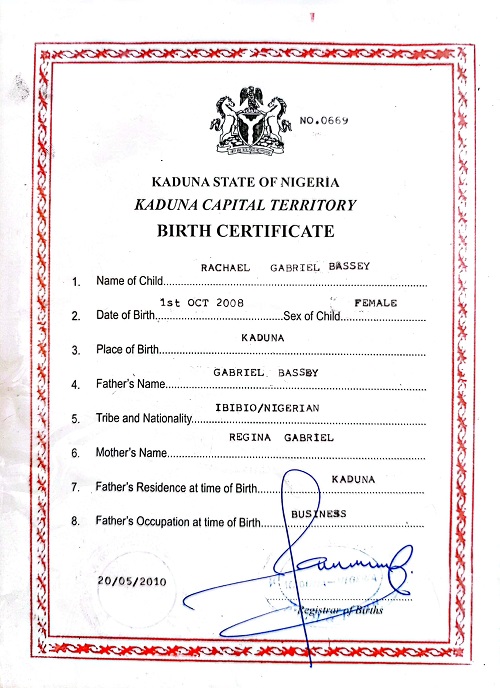 NO.0669
KADUNA STATE OF NIGERIA
KADUNA CAPITAL TERRITORY
BIRTH CERTIFICATE
1. Name of Child RACHAEL GABRIEL BASSEY
2. Date of Birth 1st OCT 2008 Sex of Child FEMALE
3. Place of Birth KADUNA
4. Father's Name GABRIEL BASSEY
5. Tribe and Nationality IBIBIO/NIGERIAN
6. Mother's Name REGINA GABRIEL
7. Father's Residence at time of Birth KADUNA
8. Father's Occupation at time of Birth BUSINESS
20/05/2010
Registrar of Births